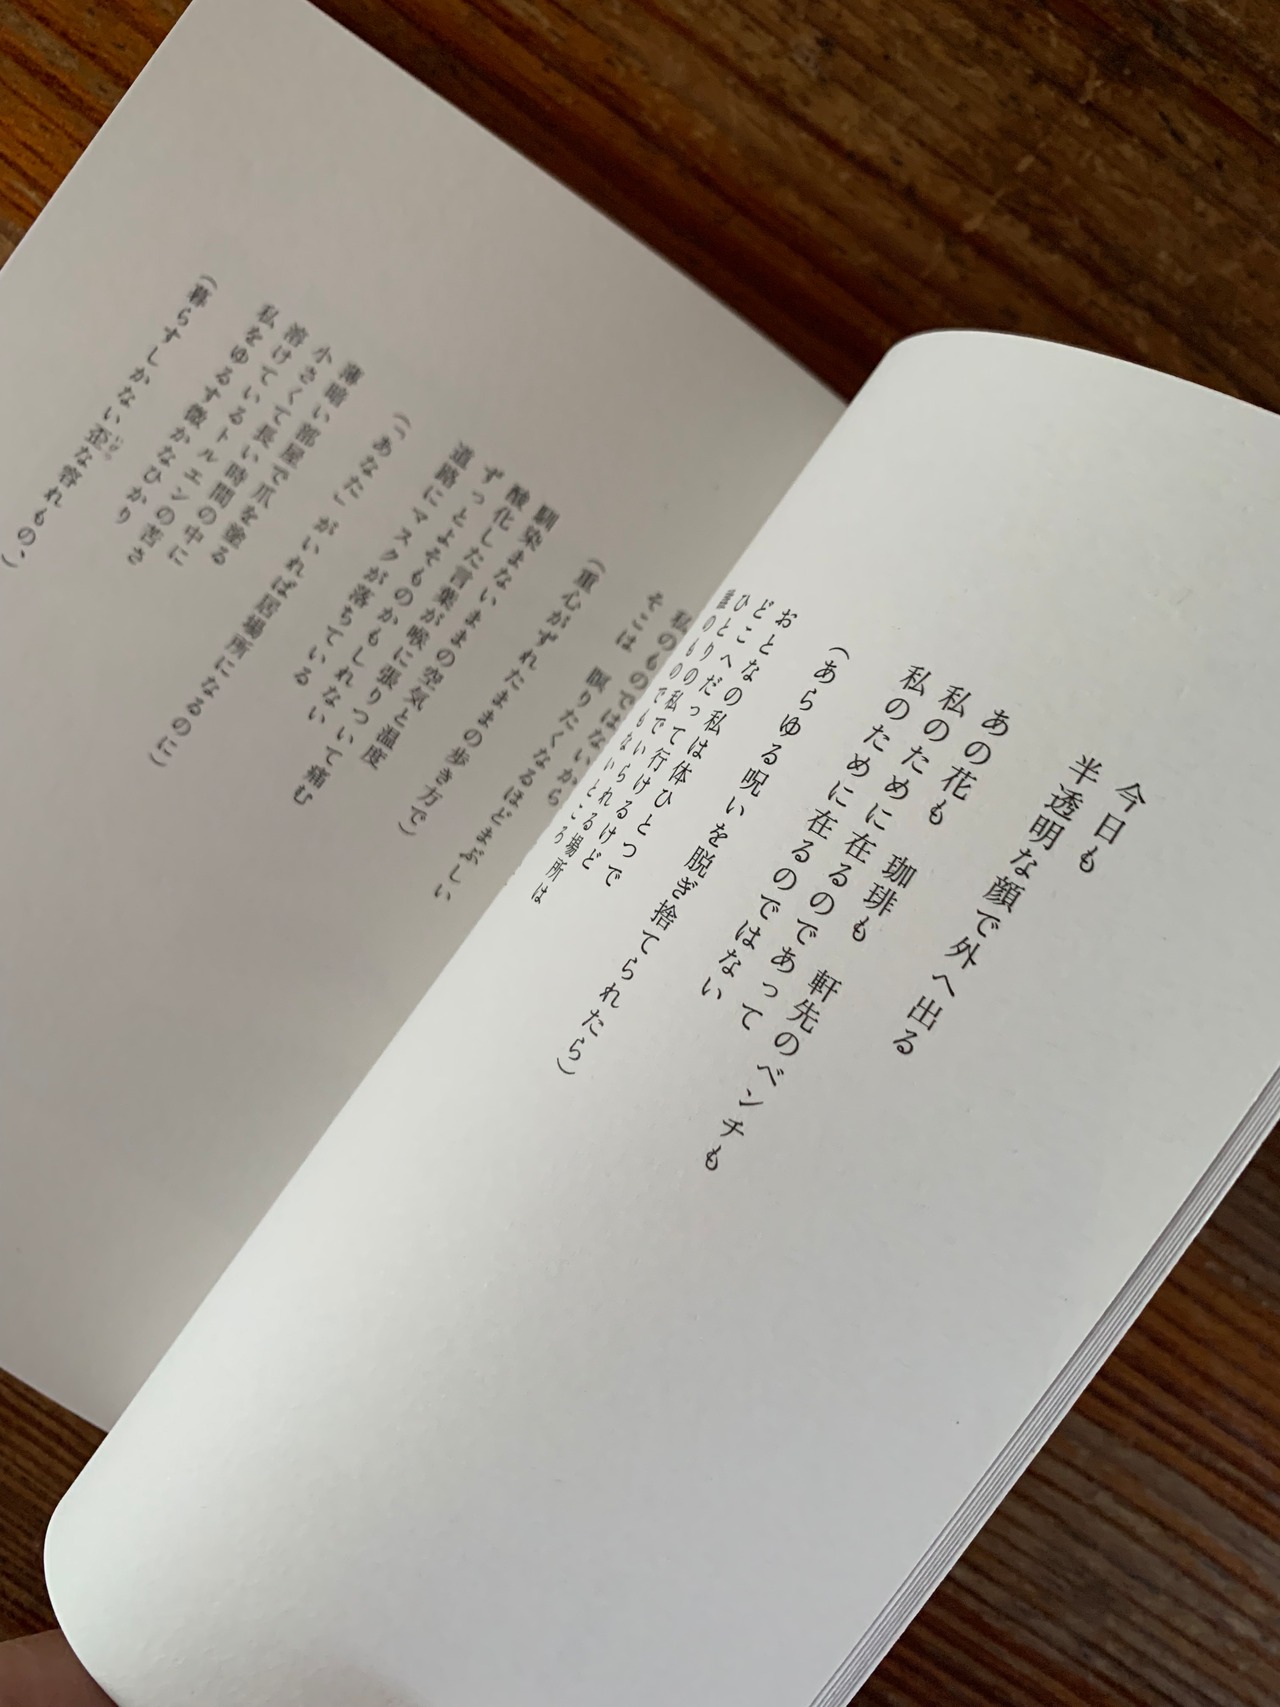 今日も
半透明な顔で外へ出る
あの花も 珈琲も 軒先のベンチも
私のために在るのであって
私のために在るのではない
(あらゆる呪いを脱ぎ捨てられたら)
おとなの私は体ひとつで
どこへだって行けるけど
ひとりの私でいられる場所は
誰のものでもないところ
私のものではないから
そこは 瞑りたくなるほどまぶしい
(重心がずれたままの歩き方で)
馴染まないままの空気と温度
酸化した言葉が喉に張りついて痛む
ずっとよそものかもしれない
道路にマスクが落ちている
(「あなた」がいれば居場所になるのに)
薄暗い部屋で爪を塗る
小さくて長い時間の中に
溶けているトルエンの苦さ
私をゆるす微かなひかり
(暮らすしかない歪な容れもの、)